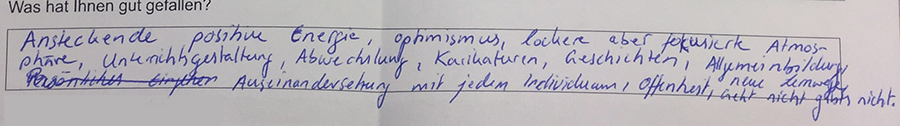 Was hat Ihnen gut gefallen?
Ansteckende positive Energie, optimismus, lockere aber fokusierte Atmos-
phäre, Unterrichtsgestaltung, Abwechslung, Karikaturen, Geschichten, Allgemeinbildung
Persönliches Auseinandersetzung mit jedem Individuum, Offenheit, neue Lernwege
geht nicht gibts nicht.